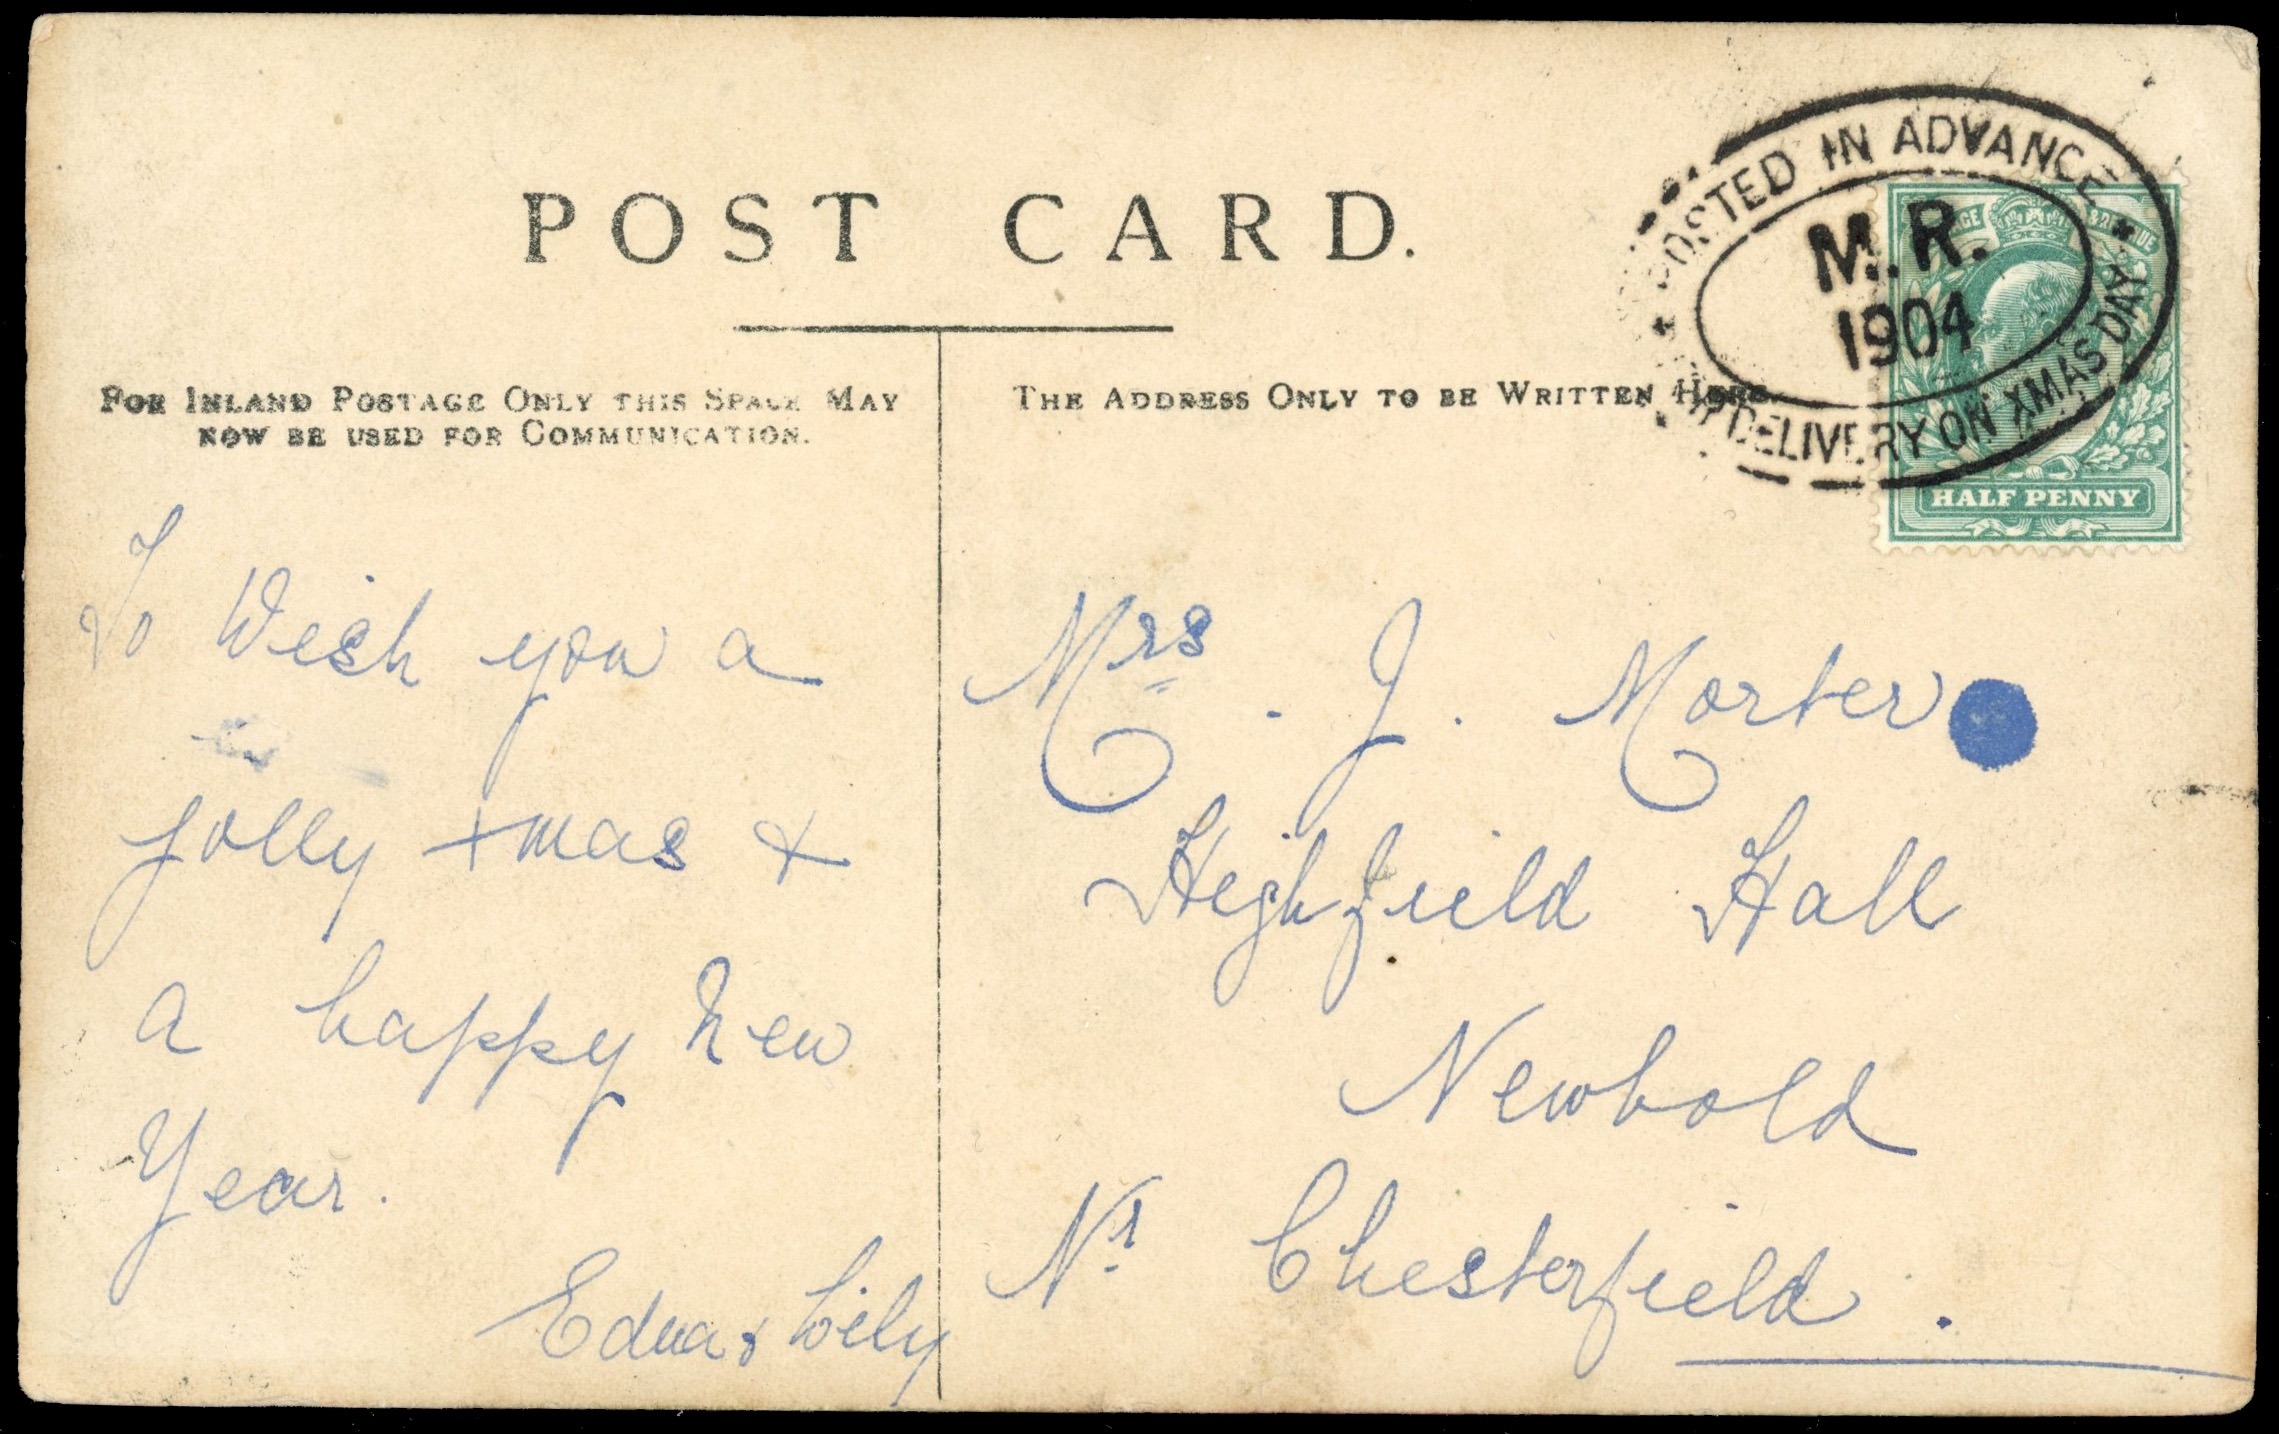 POST CARD.
FOR INLAND POSTAGE ONLY THIS SPACE MAY
NOW BE USED FOR COMMUNICATION.
THE ADDRESS ONLY TO BE WRITTEN HERE.
POSTED IN ADVANCE
M.R.
1904
DELIVERY ON XMAS DAY
HALF PENNY
To Wish you a
jolly xmas &
a happy New
Year.
Edna & Lily
Mrs. J. Morter
Highfield Hall
Newbold
Nr Chesterfield.